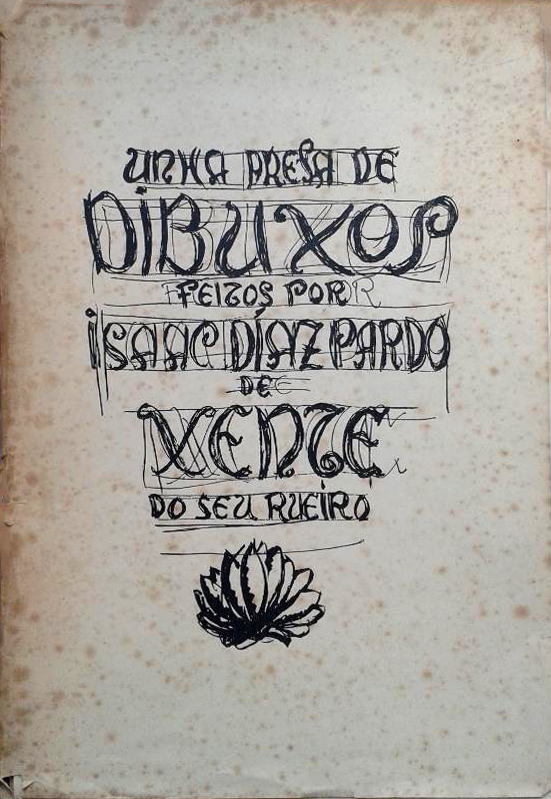 UNHA PRESA DE
DIBUXOS
FEITOS POR
ISAAC DÍAZ PARDO
DE
XENTE
DO SEU RUEIRO